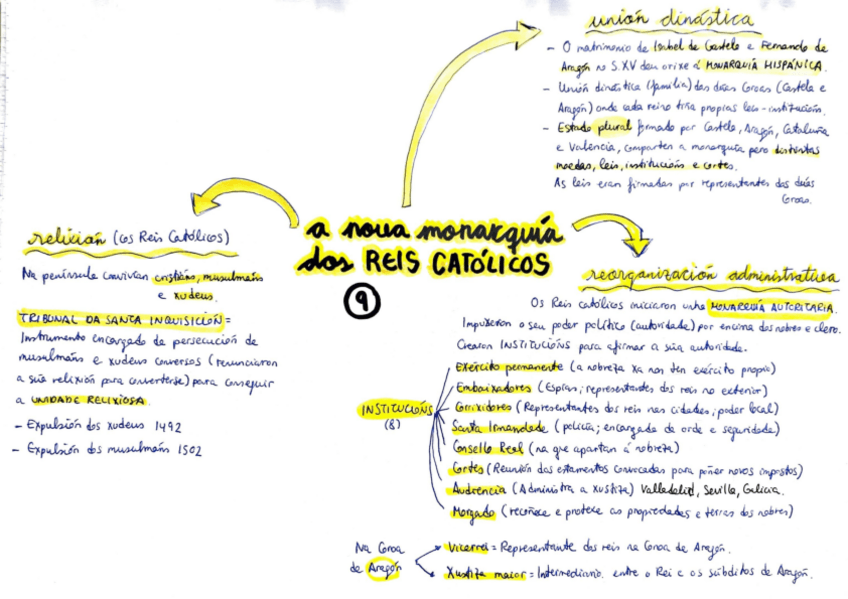 a nova monarquía
dos REIS CATÓLICOS
9
unión dinástica
- O matrimonio de Isabel de Castela e Fernando de
Aragón no S.XV deu orixe á MONARQUÍA HISPÁNICA.
- Unión dinástica (familia) das dúas Coroas (Castela e
Aragón) onde cada reino tiña propias leis-institucións.
- Estado plural formado por Castela, Aragón, Cataluña
e Valencia, comparten a monarquía pero distintas
moedas, leis, institucións e cortes.
As leis eran firmadas por representantes das dúas
Coroas.
relixión (os Reis Católicos)
Na península convivían cristiáns, musulmáns
e xudeus.
TRIBUNAL DA SANTA INQUISICIÓN =
Instrumento encargado da persecución de
musulmáns e xudeus conversos (renunciaron
a súa relixión para converterse) para conseguir
a UNIDADE RELIXIOSA.
- Expulsión dos xudeus 1492
- Expulsión dos musulmáns 1502
reorganización administrativa
Os Reis católicos iniciaron unha MONARQUÍA AUTORITARIA.
Impuxeron o seu poder político (autoridade) por encima dos nobres e clero.
Crearon INSTITUCIÓNS para afirmar a súa autoridade.
INSTITUCIÓNS
(8)
Exército permanente (a nobreza xa non ten exército propio)
Embaixadores (Espías; representantes dos reis no exterior)
Corrixidores (Representantes dos reis nas cidades; poder local)
Santa Irmandade (policía; encargada da orde e seguridade)
Consello Real (na que apartan á nobreza)
Cortes (Reunión dos estamentos convocadas para poñer novos impostos)
Audiencia (Administra a xustiza) Valladolid, Sevilla, Galicia.
Morgado (recoñece e protexe as propiedades e terras dos nobres)
Na Coroa
de Aragón
Vicerrei = Representante dos reis na Coroa de Aragón.
Xustiza maior = Intermediario entre o Rei e os súbditos de Aragón.